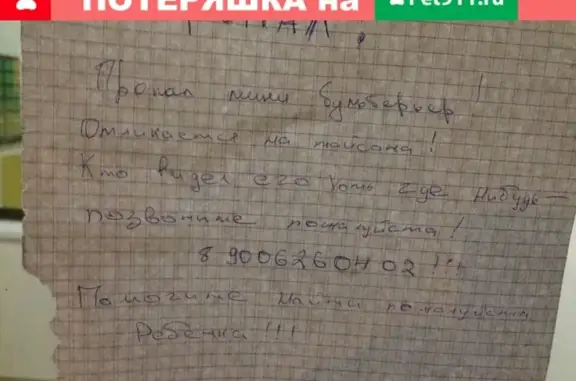 ПОТЕРЯШКА на Pet911.ru
Пропал мини бультерьер!
Откликается на тайсона!
Кто видел его хоть где нибудь —
позвоните пожалуйста!
8 9006260402!!!
Помогите найти пожалуйста
Ребёнка!!!